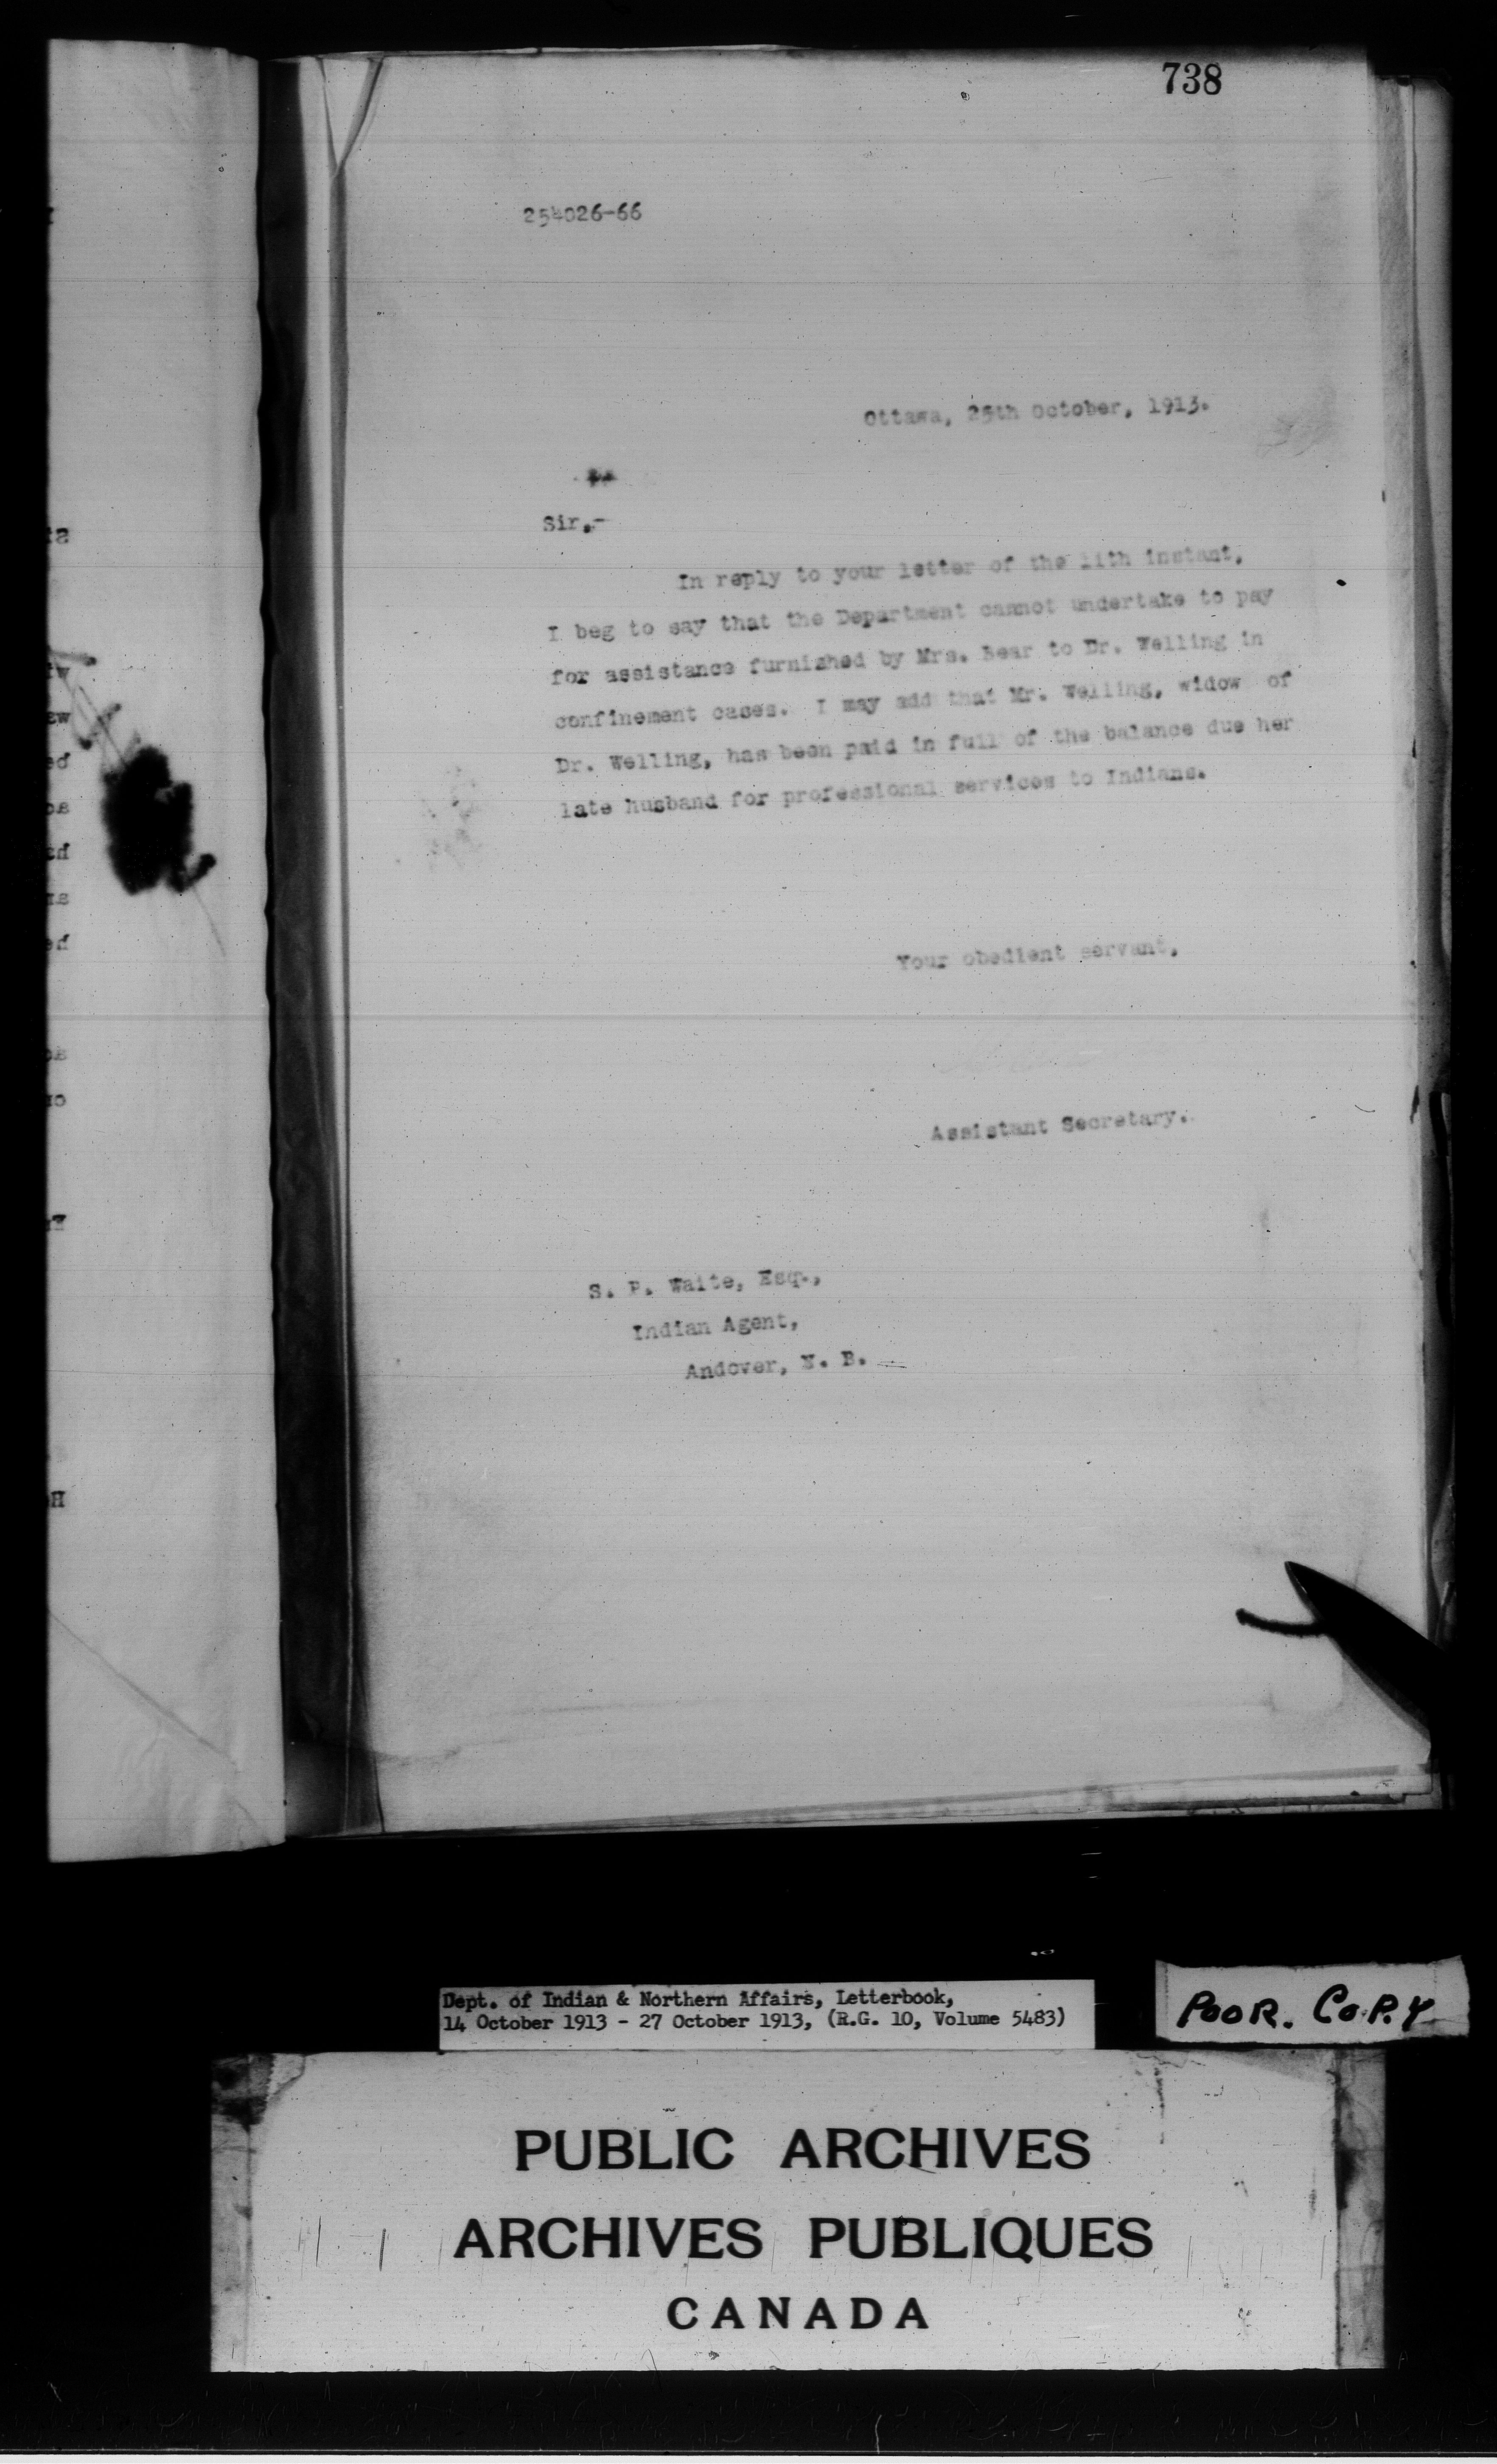 738
254026-66
Ottawa, 25th October, 1913.
Sir,-
In reply to your letter of the 11th instant,
I beg to say that the Department cannot undertake to pay
for assistance furnished by Mrs. Bear to Dr. Welling in
confinement cases. I may add that Mr. Welling, widow of
Dr. Welling, has been paid in full of the balance due her
late husband for professional services to Indians.
Your obedient servant,
Assistant Secretary.
S. P. Waite, Esq.,
Indian Agent,
Andover, N. B.
Dept. of Indian & Northern Affairs, Letterbook,
14 October 1913 - 27 October 1913, (R.G. 10, Volume 5483)
POOR. COPY
PUBLIC ARCHIVES
ARCHIVES PUBLIQUES
CANADA